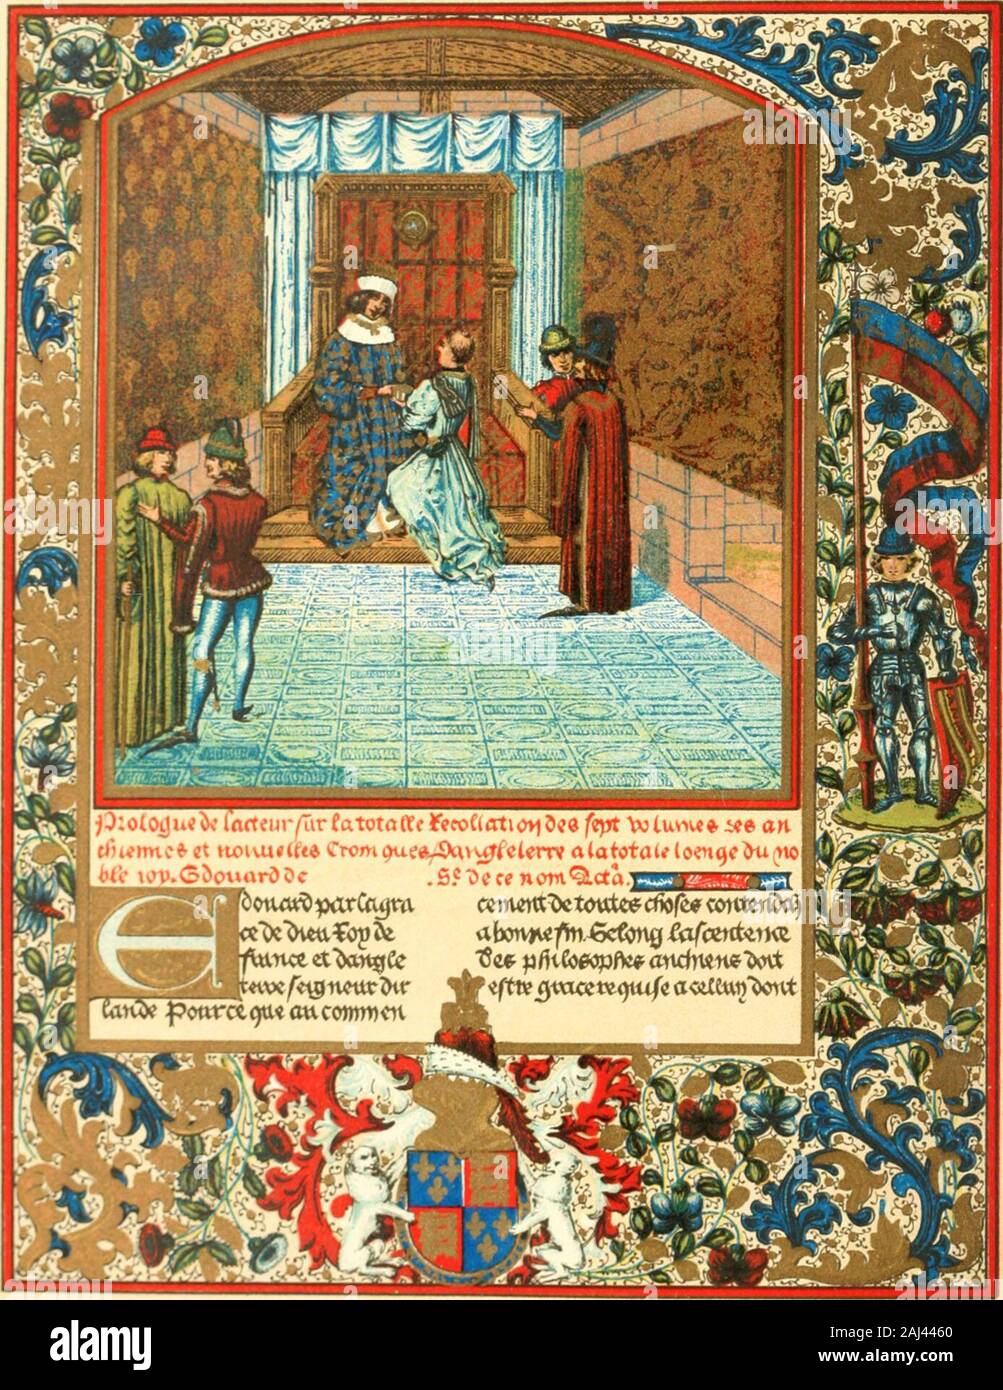 Prologue de lacteur sur la totalle Recollation des sept volumes des an
chiennes et nouuelles Cronicques Dangleterre a la totale loenge du no
ble roy. Edouard de . de ce nom
Edouard par la gra
ce de dieu Roy de
france et dangle
terre seigneur dir
lande Pource que au commen
cement de toutes choses
a bonne fin. Selong la sentence
des philosophes anchiens doit
estre grace requise a celluy dont
alamy
Image ID: 2AJ4460
www.alamy.com